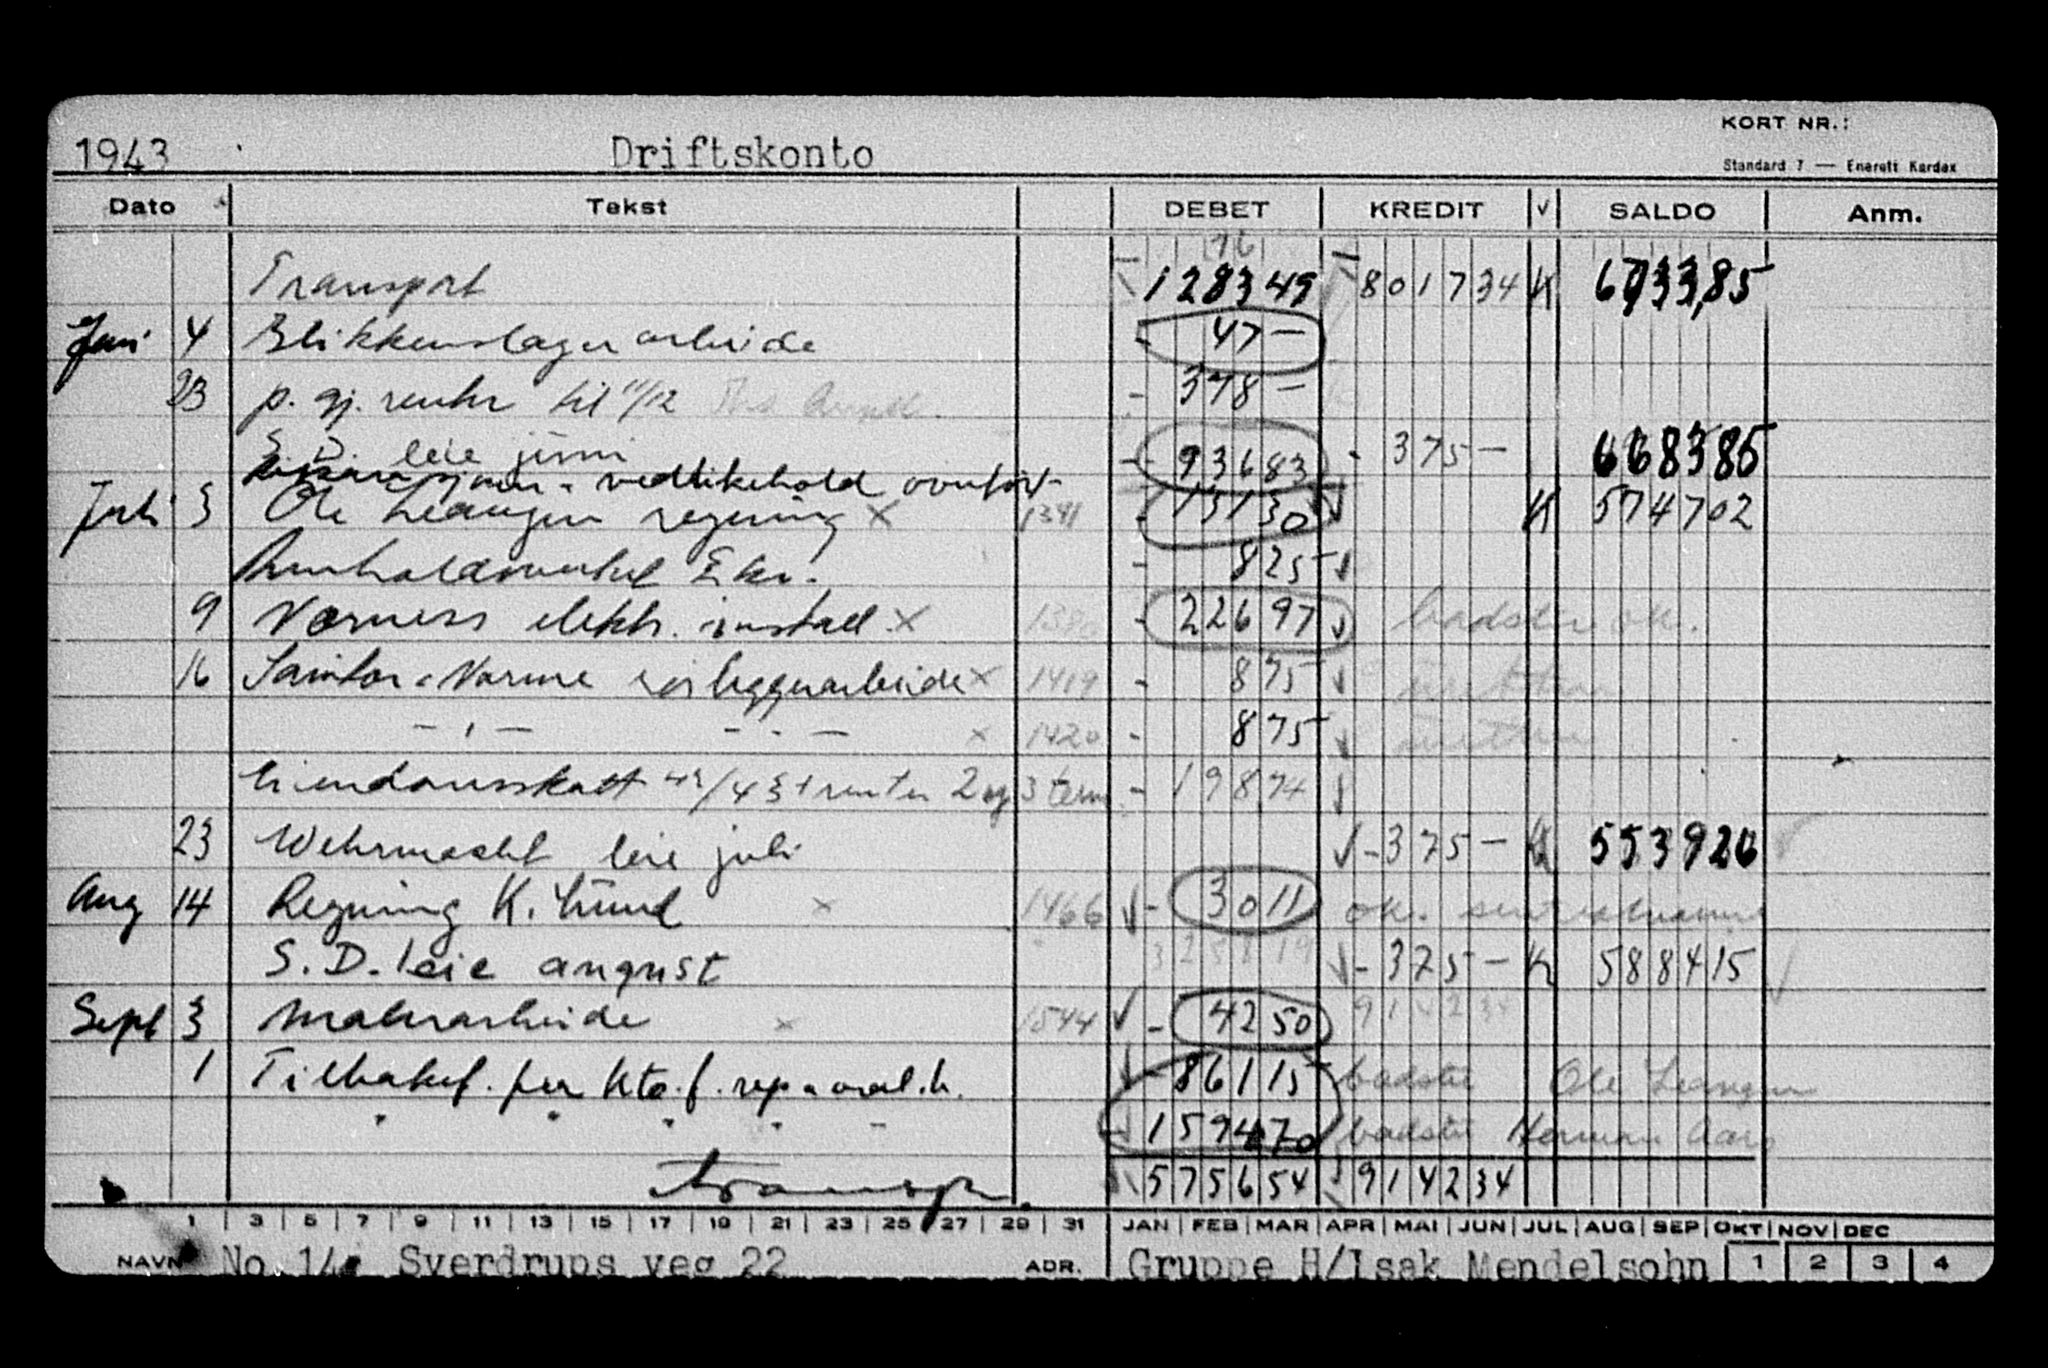 KORT NR.:
1943 Driftskonto
Standard 7 — Enerett Kardex
Dato Tekst DEBET KREDIT √ SALDO Anm.
16
Transport 128349 801734 K 6733,85
Juni 4 Blikkenslagerarbeide 47 —
23 p. gj. renter til 11/12 378 —
S. D. leie juni 375 — 668385
vedlikehold overført 93683
Juli 3 Ole Leangen regning x 1341 13130 K 574702
Renholdsverket E kv. 825
9 Værness elektr. install. x 1380 22697 badstu ok.
16 Sanitær & Varme rørleggerarbeide x 1419 875
— " — — " — x 1420 875
Eiendomsskatt 42/43 + renter 2 og 3 term. 19874
23 Wehrmacht leie juli 375 — K 553926
Aug 14 Regning K. Lund x 1466 3011 ok. sentralvarme
325819
S. D. leie august 375 — K 588415
Sept 3 Malerarbeide x 1544 4250 914234
1 Tilbakef. fra kto. f. rep. & vedl.h. 86115 badstu Ole Leangen
" " " " 159470 badstu Herman Aarø
transp. 575654 914234
1 3 5 7 9 11 13 15 17 19 21 23 25 27 29 31 JAN FEB MAR APR MAI JUN JUL AUG SEP OKT NOV DEC
NAVN No. 14. Sverdrups veg 22 ADR. Gruppe H/Isak Mendelsohn 1 2 3 4